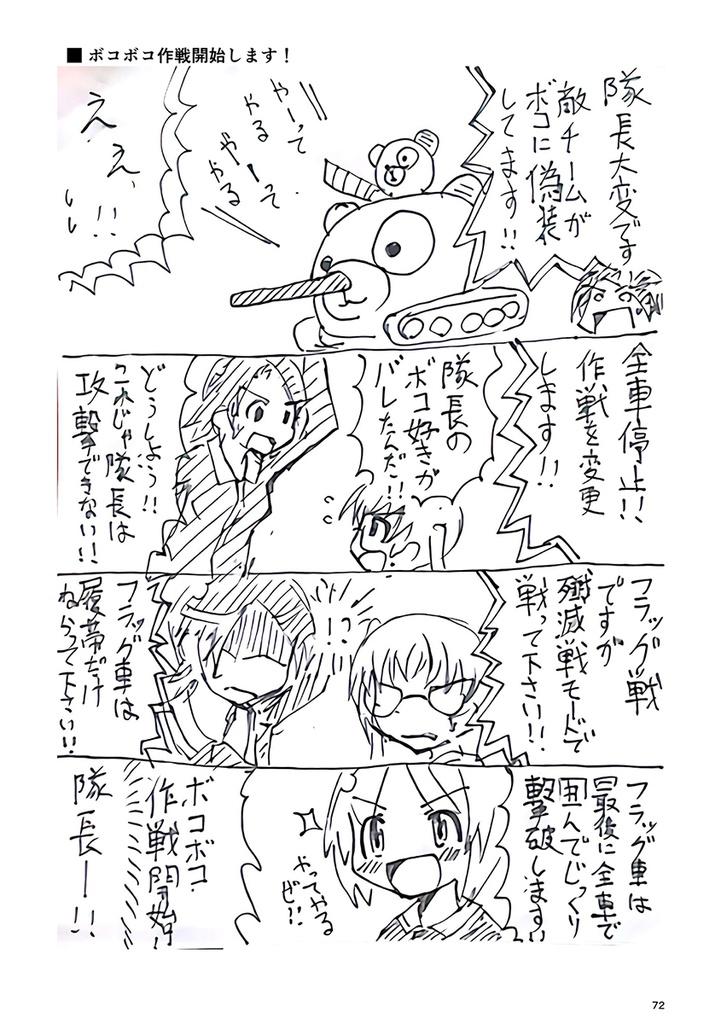 ■ ボコボコ作戦開始します！
隊長大変です
敵チームが
ボコに偽装
してます!!
やーって
やるー
やーって
やる
え、え、
いい!!
全車停止!!
作戦を変更
します!!
隊長の
ボコ好きが
バレたんだ!!
どうしよう!!
これじゃ隊長は
攻撃できない!!
フラッグ戦
ですが
殲滅戦モードで
戦って下さい!!
!?
フラッグ車は
履帯だけ
ねらって下さい!!
フラッグ車は
最後に全車で
囲んでじっくり
撃破します!!
やってやる
ぜ!!
ボコボコ
作戦開始!
隊長ー!!
72